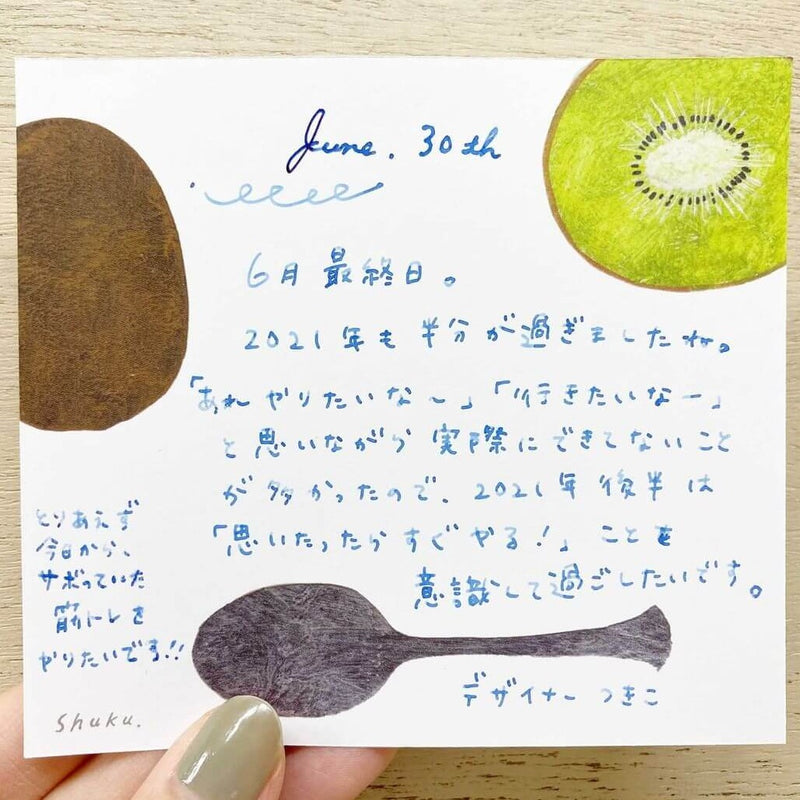 June. 30th
6月 最終日。
2021年も 半分が過ぎましたね。
「あれ やりたいな〜」「行きたいなー」
と思いながら 実際にできてないこと
が多かったので、2021年 後半は
「思いたったら すぐ やる!」ことを
意識して過ごしたいです。
とりあえず
今日から、
サボっていた
筋トレを
やりたいです!!
デザイナー つきこ
Shuku.